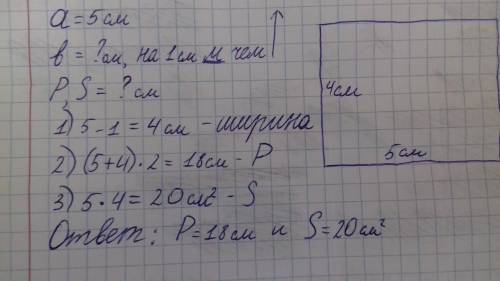 a = 5 см
в = ? см, на 1 см м чем
P, S = ? см
1) 5 - 1 = 4 см - ширина
2) (5+4) · 2 = 18 см - P
3) 5 · 4 = 20 см² - S
Ответ: P = 18 см и S = 20 см²
4 см
5 см